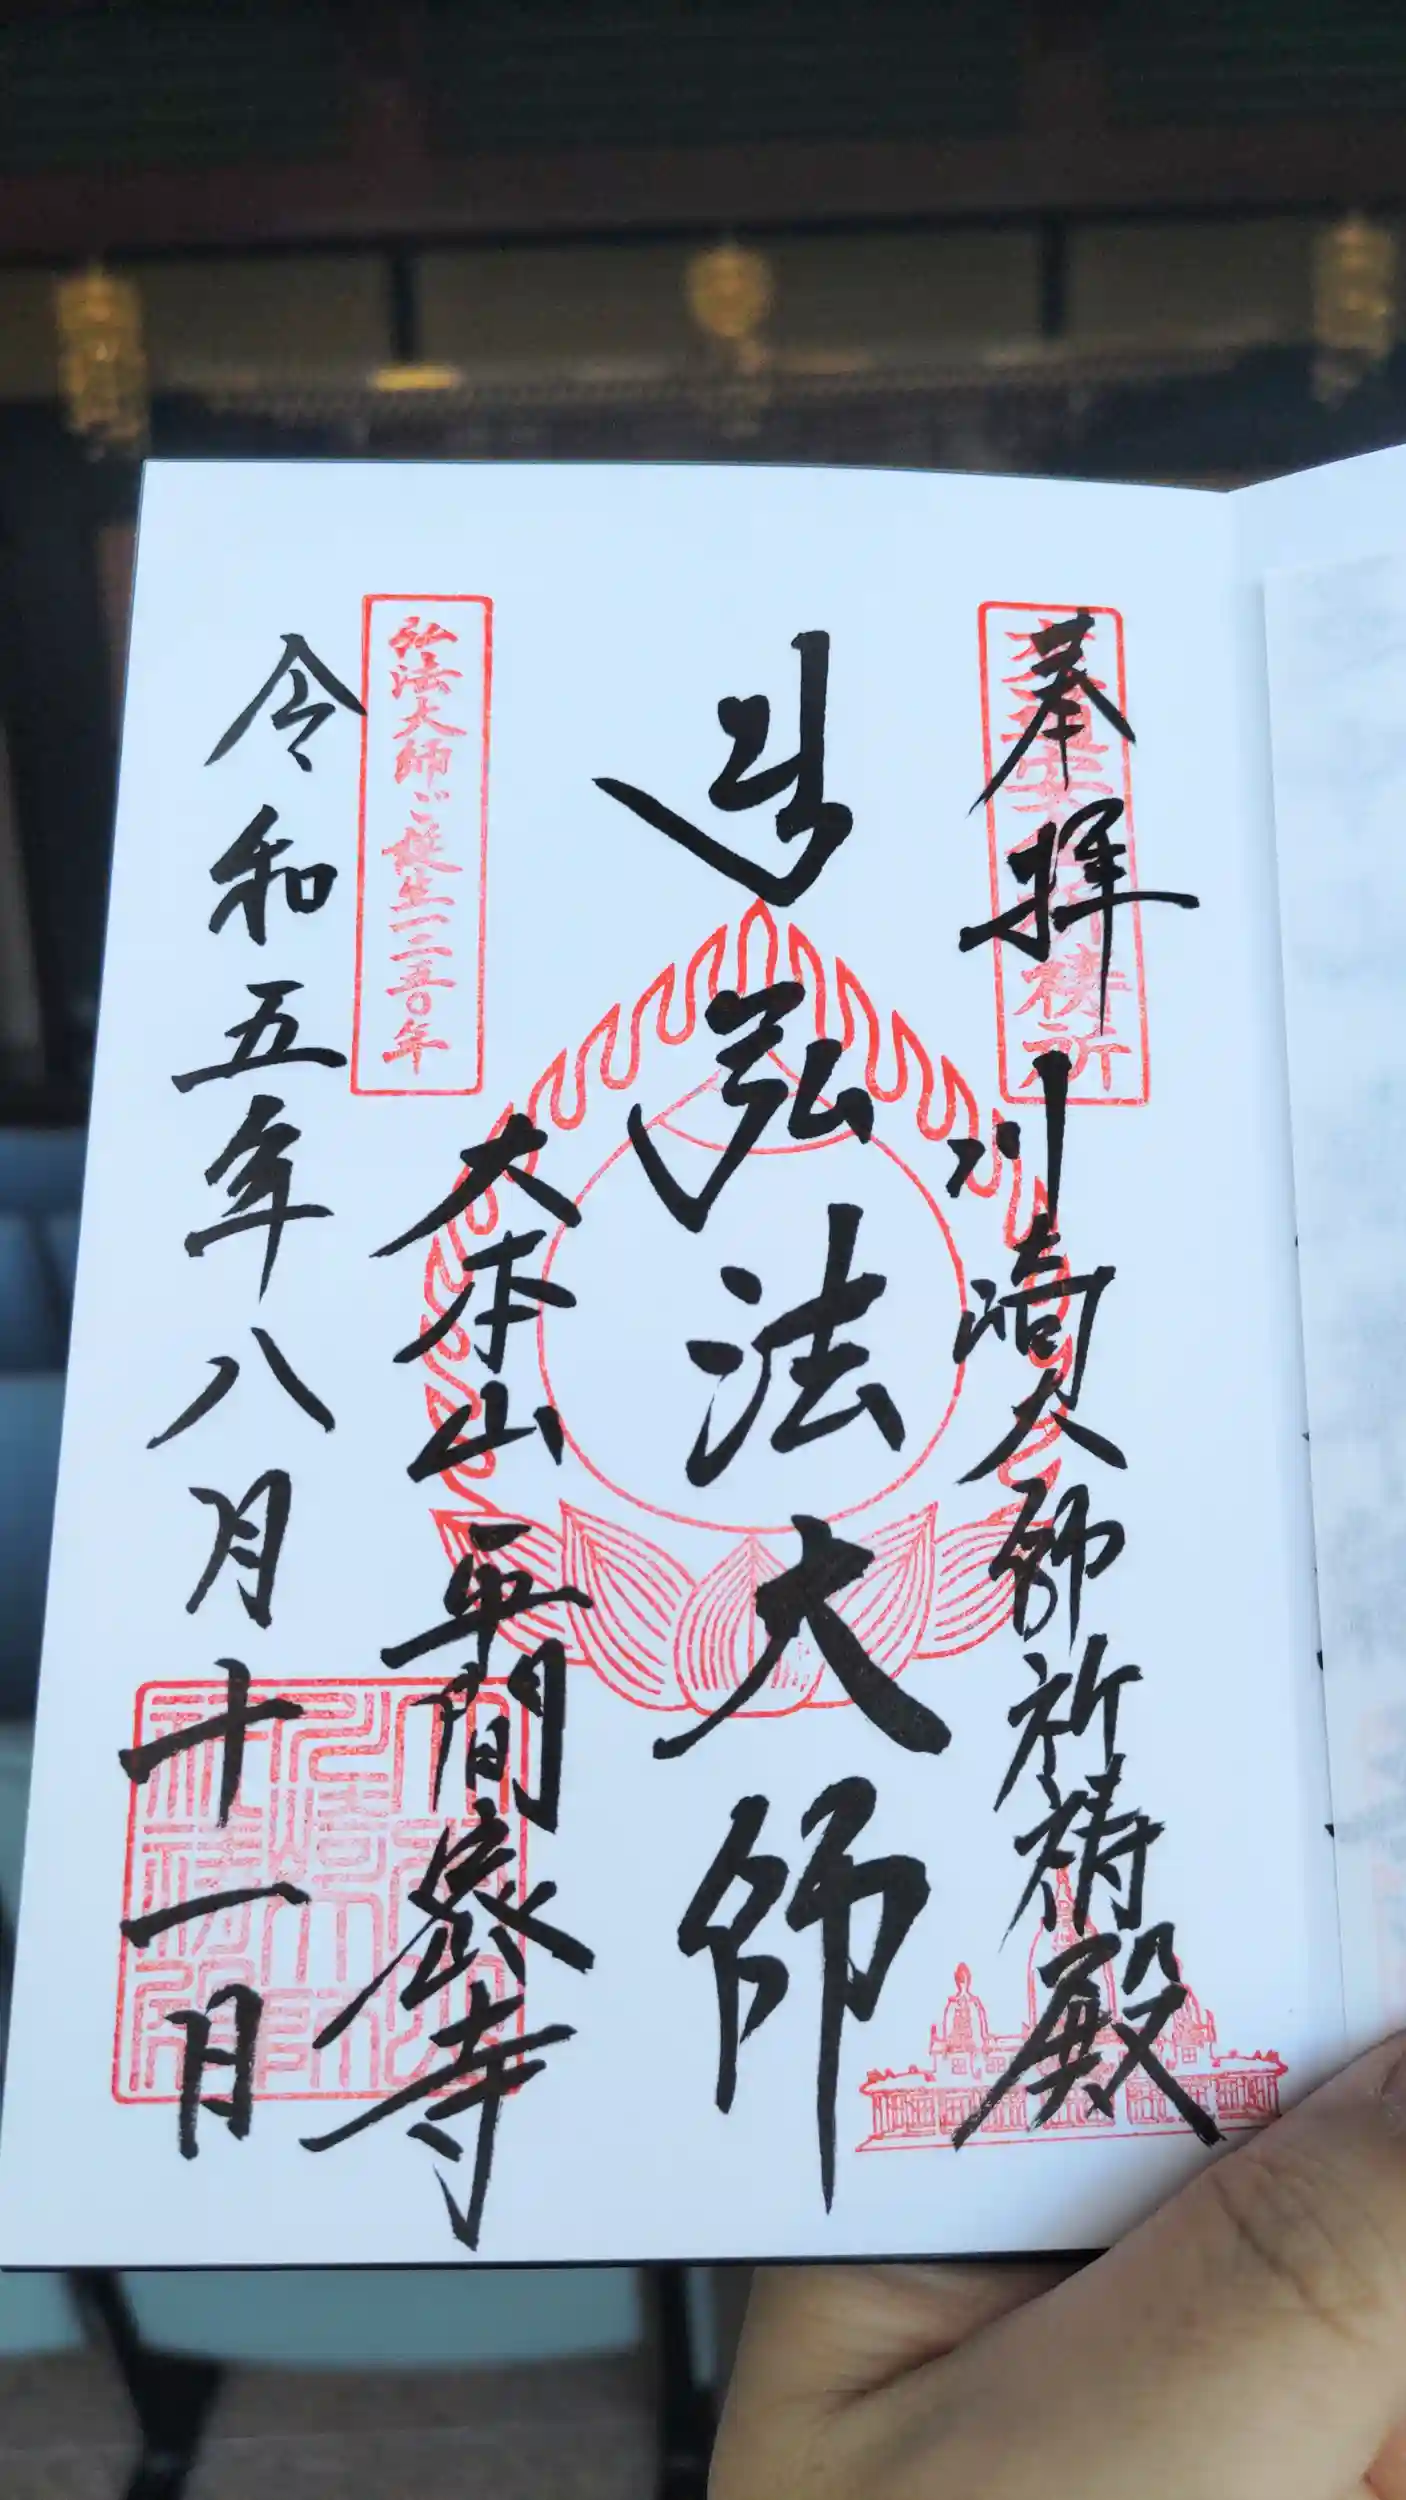 奉拝
交通安全祈祷所
川崎大師祈祷殿
弘法大師
弘法大師ご誕生一二五〇年
大本山平間密寺
令和五年八月十一日